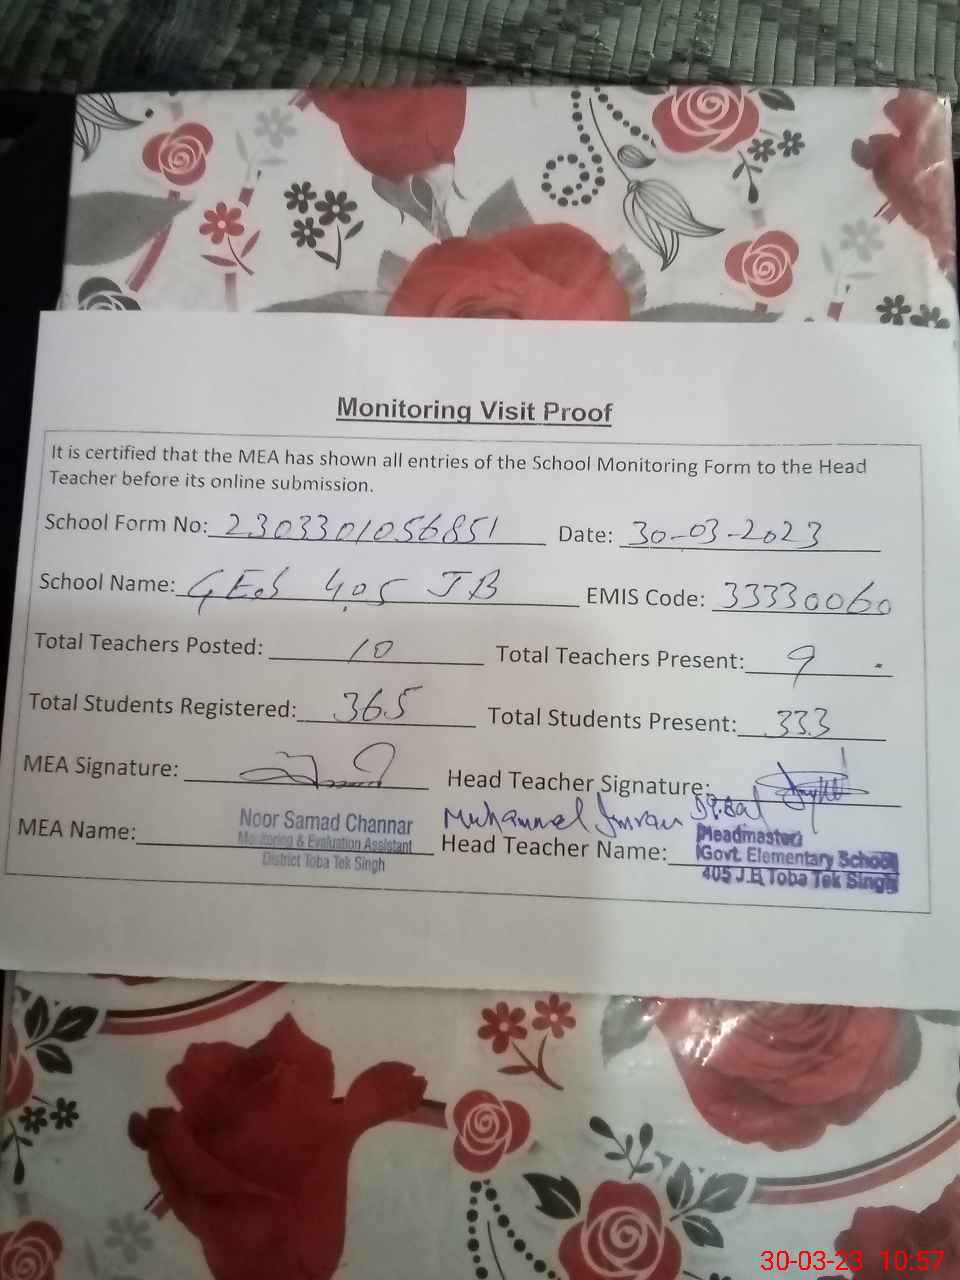 Monitoring Visit Proof
It is certified that the MEA has shown all entries of the School Monitoring Form to the Head
Teacher before its online submission.
School Form No: 2303301056851 Date: 30-03-2023
School Name: GES 405 JB EMIS Code: 33330060
Total Teachers Posted: 10 Total Teachers Present: 9
Total Students Registered: 365 Total Students Present: 333
MEA Signature: Head Teacher Signature:
Muhammad Imran Iqbal
MEA Name: Noor Samad Channar Head Teacher Name: Headmaster
Monitoring & Evaluation Assistant Govt. Elementary School
District Toba Tek Singh 405 J.B, Toba Tek Singh
30-03-23 10:57